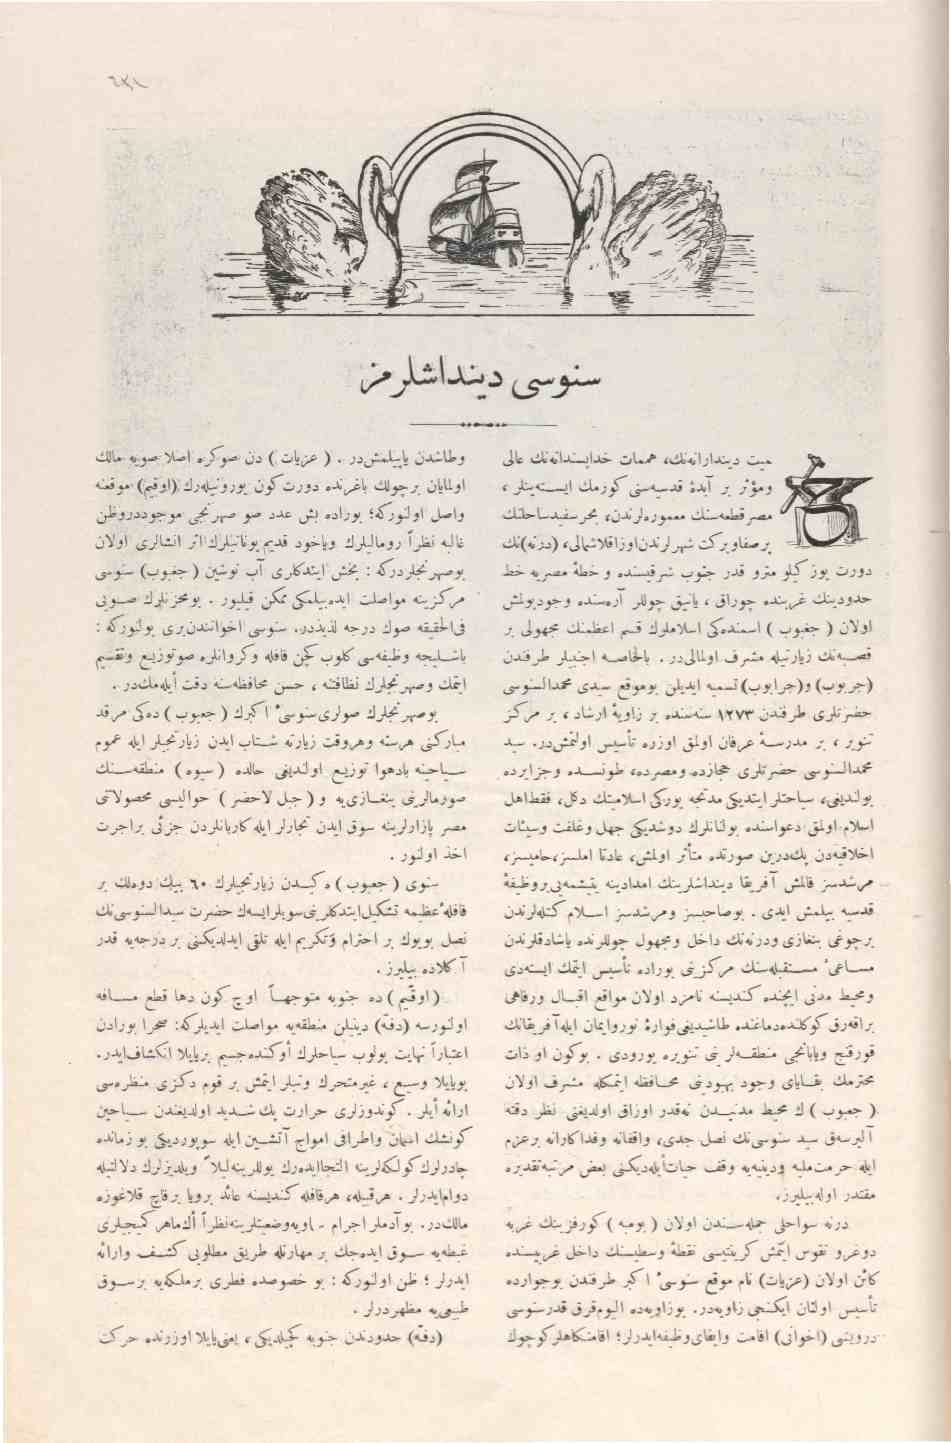 ٦٣١
سنوسی دینداشلرمز
میت دیندارانه‌نك، هممات خداپسندانه‌نك عالی
ومؤثر بر آبدهٔ قدسیه‌سنی كورمك ایسته‌ینلر ،
مصر قطعه‌سنك معموره‌لرندن، بحر سفید ساحلنك
پرصفاوبركت شهرلرندن اوزاقلاشمالی، (درنه)نك
دورت یوز كیلو مترو قدر جنوب شرقیسنده و خطهٔ مصریه خط
حدودینك غربنده چوراق ، یانیق چوللر آره‌سنده وجودبولمش
اولان ( جغبوب ) اسمنده‌كی اسلاملرك قسم اعظمنك مجهولی بر
قصبه‌نك زیارتیله مشرف اولمالی‌در . بالخاصه اجنبیلر طرفندن
(جربوب) و(جرابوب) تسمیه ایدیلن بوموقع سیدی محمدالسنوسی
حضرتلری طرفندن ١٢٧٣ سنه‌سنده بر زاویهٔ ارشاد ، بر مركز
تنویر ، بر مدرسهٔ عرفان اولمق اوزره تأسیس اولنمش‌در. سید
محمدالسنوسی حضرتلری حجازده ومصرده، طونسده وجزایرده
بولندیغی، سیاحتلر ایتدیكی مدتجه یوركی اسلامیتك دكل، فقط اهل
اسلام اولمق دعواسنده بولنانلرك دوشدیكی جهل وغفلت وسیئات
اخلاقیه‌دن پك‌درین صورتده متأثر اولمش، عادتا املسز،حامیسز،
مرشدسز قالمش آفریقا دینداشلرینك امدادینه یتیشمه‌یی بر وظیفهٔ
قدسیه بیلمش ایدی . بوصاحبسز ومرشدسز اسلام كتله‌لرندن
برچوغی بنغازی ودرنه‌نك داخل ومجهول چوللرنده یاشادقلرندن
مساعیٔ مستقبله‌سنك مركزینی بوراده تأسیس ایتمك ایسته‌دی
ومحیط مدنی ایچنده كندیسنه نامزد اولان مواقع اقبال ورفاهی
براقه‌رق كوكلنده‌دماغنده طاشیدیغی فوارهٔ نوروایمان ایله آفریقانك
قورقنج ویابانجی منطقه‌لر نی تنویره یورودی . بوكون او ذات
محترمك بقایای وجود بهبودنی محافظه ایتمكله مشرف اولان
( جغبوب ) ك محیط مدنیدن نه‌قدر اوزاق اولدیغنی نظر دقته
آلیرسه‌ق سید سنوسی‌نك نصل جدی، واقفانه وفداكارانه برعزم
ایله حرمت‌ملیه ودینیه‌یه وقف حیات‌ایله‌دیكنی بعض مرتبه‌تقدیره
مقتدر اوله بیلیرز.
درنه سواحلی جمله‌سندن اولان ( بومبه ) كورفزینك غربه
دوغرو تقوس ایتمش كریتیسی نقطهٔ وسطیسنك داخل غربیسنده
كائن اولان (عزیات) نام موقع سنوسیٔ اكبر طرفندن بوجوارده
تأسیس اولنان ایكنجی زاویه‌در. بوزاویه‌ده الیوم‌قرق قدرسنوسی
درویشی (اخوانی) اقامت وایفای‌وظیفه‌ایدرلر؛ اقامتكاهلركوچوك
وطاشدن یاپیلمش‌در . ( عزیات ) دن صوكره اصلا صویه مالك
اولمایان برچولك باغرنده دورت كون یورونیله‌رك (اوقیم) موقعنه
واصل اولنوركه؛ بوراده بش عدد صو صهرنجی موجوددروظن
غالبه نظراً رومالیلرك ویاخود قدیم یونانیلرك اثر انشالری اولان
بوصهرنجلردركه : بخش ایتدكاری آب نوشین ( جغبوب) سنوسی
مركزینه مواصلت ایده‌بیلمكی ممكن قیلیور . بومخزنلرك صوبی
فی‌الحقیقه صوك درجه لذیذدر. سنوسی اخوانندن‌بری بولنوركه :
باشلیجه وظیفه‌سی كلوب كچن قافله وكروانلره صوتوزیع وتقسیم
ایتمك وصهرنجلرك نظافتنه ، حسن محافظه‌سنه دقت ایله‌مك‌در.
بوصهرنجلرك صولری سنوسیٔ اكبرك ( جغبوب ) ده‌كی مرقد
مباركنی هرسنه وهروقت زیارته شتاب ایدن زیارتجیلر ایله عموم
سیاحینه بادهوا توزیع اولندیغی حالده ( سیوه ) منطقه‌سنك
صورمالرینی بنغازی‌یه و ( جبل لاخضر ) حوالیسی محصولاتی
مصر پازارلرینه سوق ایدن تجارلر ایله كاربانلردن جزئی براجرت
اخذ اولنور .
سنوی ( جغبوب ) ه كیدن زیارتجیلرك ٦٠ بیك دوه‌لك بر
قافلهٔ عظیمه تشكیل ایتدكلرینی سویلرایسه‌ك حضرت سیدالسنوسی‌نك
نصل بویوك بر احترام وتكریم ایله تلقی ایدلدیكنی بر درجه‌یه قدر
آكلاده بیلیرز .
(اوقیم) ده جنوبه متوجهاً اوچ كون دها قطع مسافه
اولنورسه (دفه) دینیلن منطقه‌یه مواصلت ایدیلركه: صحرا بورادن
اعتباراً نهایت بولوب سیاحلرك اوكنده‌جسیم بریایلا انكشاف‌ایدر.
بویایلا وسیع ، غیرمتحرك وتپلر ایتمش بر قوم دكزی منظره‌سی
ارائه ایلر . كوندوزلری حرارت پك شدید اولدیغندن سیاحین
كونشك التهان واطرافی امواج آتشین ایله سوپوردیكی بو زمانده
چادرلرك كولكه‌لرینه التجاایده‌رك یوللرینه‌لیلاً ویلدیزلرك دلالتیله
دوام‌ایدرلر . هرقبیله، هرقافله كندیسنه عائد برویا برقاچ قلاغوزه
مالك‌در. بوآدملر اجرام ـ اویه‌وضعیتلرینه‌نظراً اك‌ماهر كمیجیلری
غبطه‌یه سوق ایده‌جك بر مهارتله طریق مطلوبی كشف وارائه
ایدرلر ؛ ظن اولنوركه : بو خصوصده فطری برملكه‌یه برسوق
طبیعی‌یه مظهردرلر .
(دفه) حدودندن جنوبه كچیلدیكی ، یعنی‌یایلا اوزرنده حركت